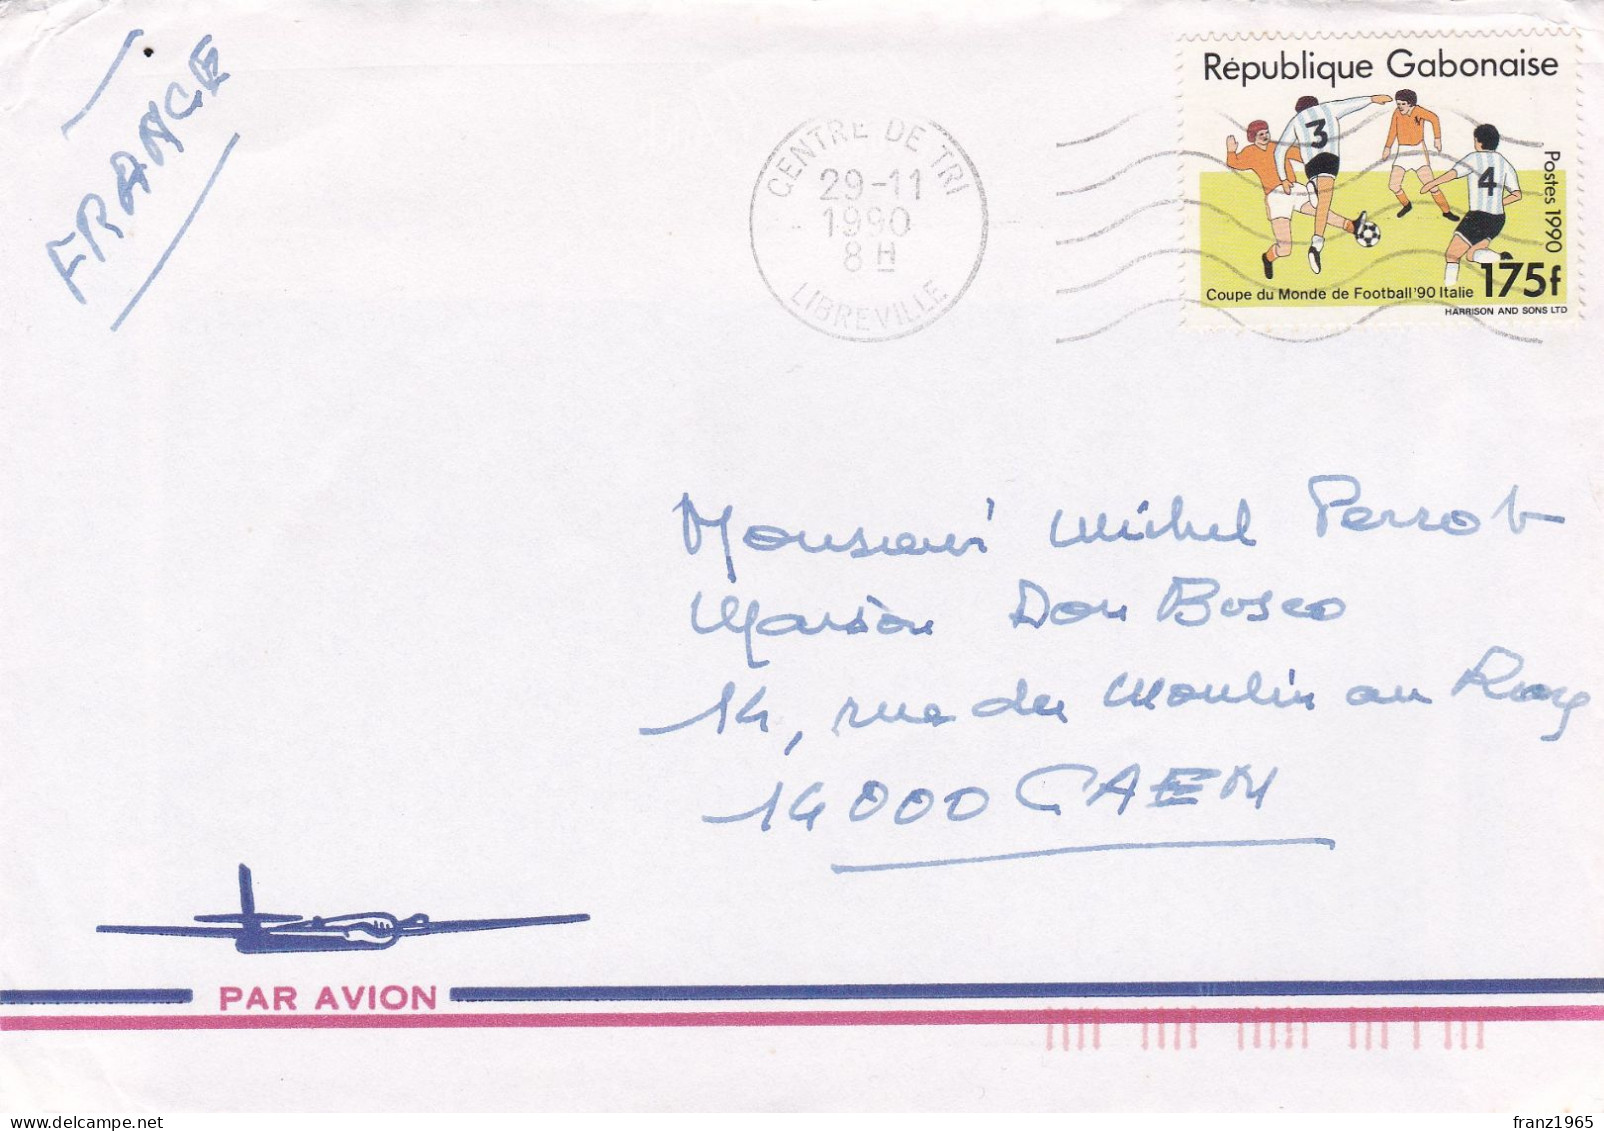 FRANCE
CENTRE DE TRI
29-11
1990
8 H
LIBREVILLE
République Gabonaise
3
4
Postes 1990
Coupe du Monde de Football '90 Italie
175f
HARRISON AND SONS LTD
Monsieur Michel Perrot
Maison Don Bosco
14, rue du Moulin au Roy
14000 CAEN
PAR AVION
franz1965